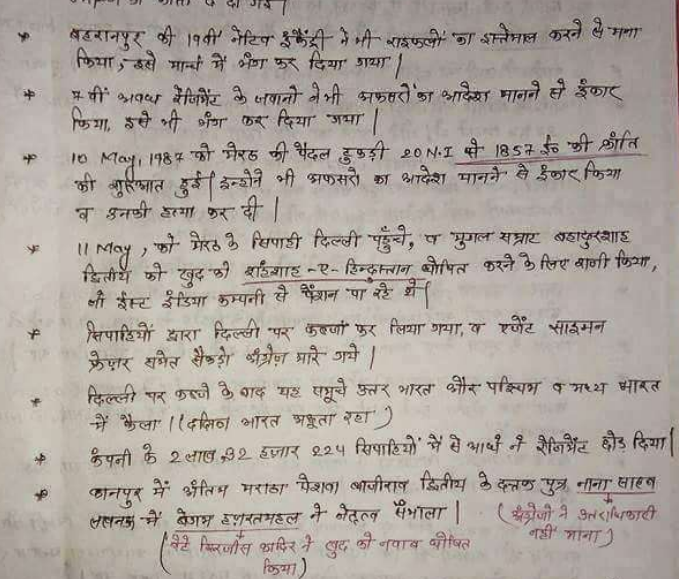 * बहरानपुर की 19वीं नेटिव इंफैंट्री ने भी राइफलों का इस्तेमाल करने से मना
किया, इसे मार्च में भंग कर दिया गया |
* 7 वीं अवध रेजिमेंट के जवानों ने भी अफसरों का आदेश मानने से इंकार
किया, इसे भी भंग कर दिया गया |
* 10 May, 1987 को मेरठ की पैदल टुकड़ी 20 N.I से 1857 ई० की क्रांति
की शुरुआत हुई | इन्होंने भी अफसरों का आदेश मानने से इंकार किया
व उनकी हत्या कर दी |
* 11 May, को मेरठ के सिपाही दिल्ली पहुँचे, व मुगल सम्राट बहादुरशाह
द्वितीय को खुद को शहंशाह-ए-हिन्दुस्तान घोषित करने के लिए राजी किया,
जो ईस्ट इंडिया कम्पनी से पेंशन पा रहे थे |
* सिपाहियों द्वारा दिल्ली पर कब्जा कर लिया गया, व एजेंट साइमन
फ्रेजर समेत सैकड़ो अंग्रेज मारे गये |
* दिल्ली पर कब्जे के बाद यह समूचे उत्तर भारत और पश्चिम व मध्य भारत
में फैला | (दक्षिण भारत अछूता रहा)
* कंपनी के 2 लाख, 32 हजार 224 सिपाहियों में से आधे ने रेजिमेंट छोड़ दिया |
* कानपुर में अंतिम मराठा पेशवा बाजीराव द्वितीय के दत्तक पुत्र नाना साहब
लखनऊ में बेगम हज़रतमहल ने नेतृत्व सँभाला | (अंग्रेजो ने उत्तराधिकारी
नहीं माना)
(बेटे बिरजीस कादिर ने खुद को नवाब घोषित
किया)